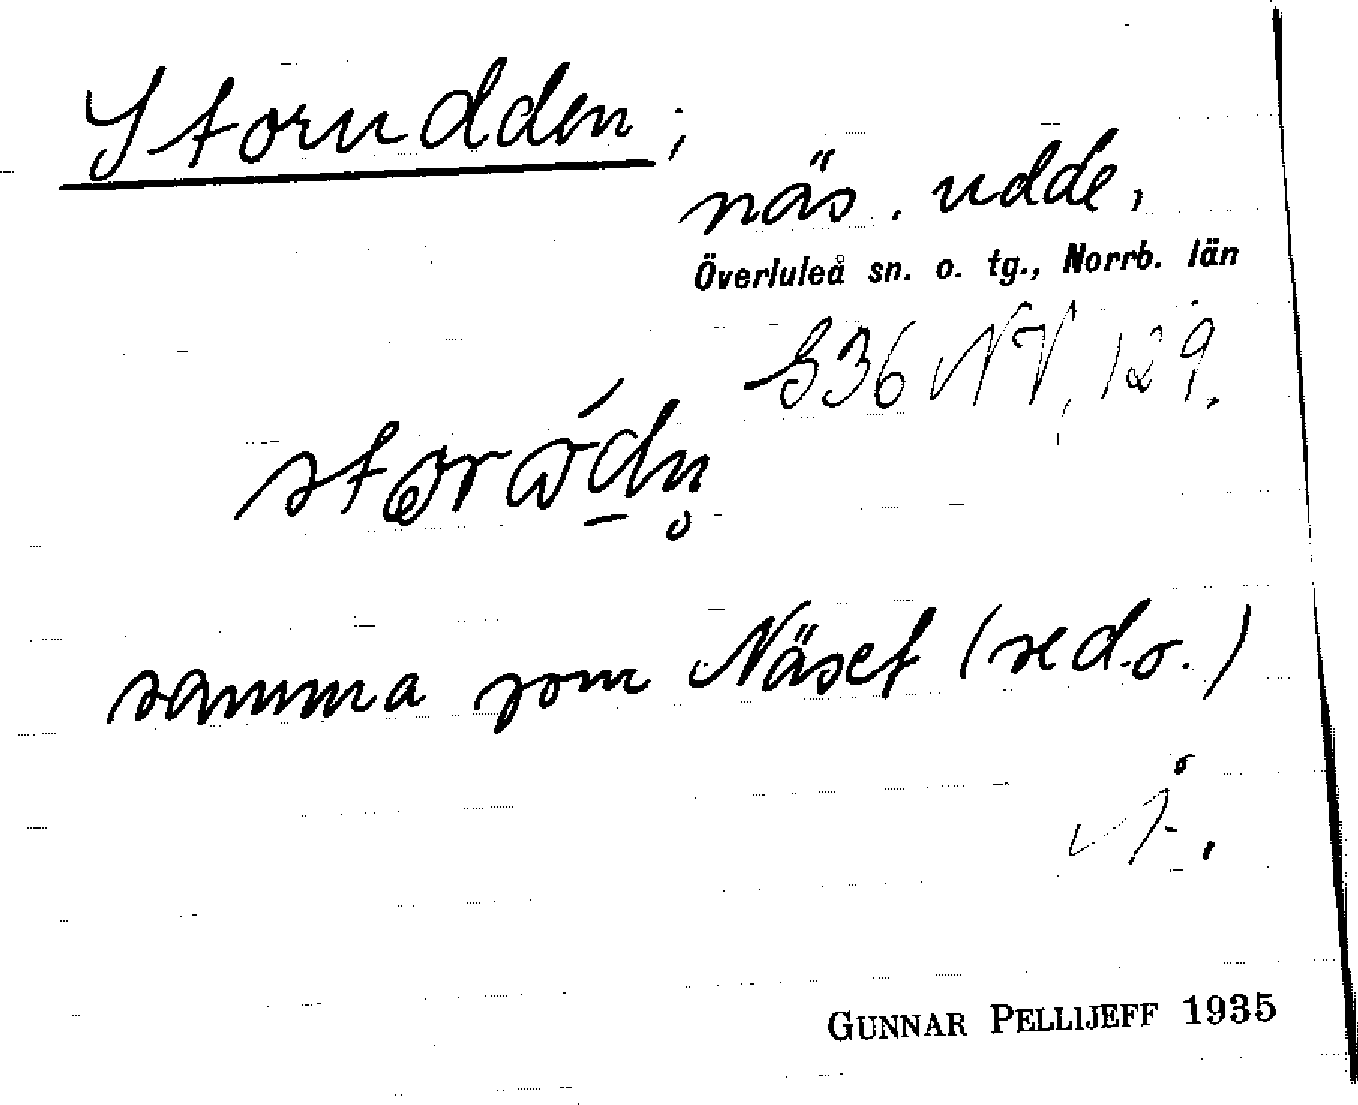 Storudden;
näs. udde,
Överluleå sn. o. tg., Norrb. län
S36 NV, 129.
samma som Näset (sed.o.)
Å.
GUNNAR PELLIJEFF 1935